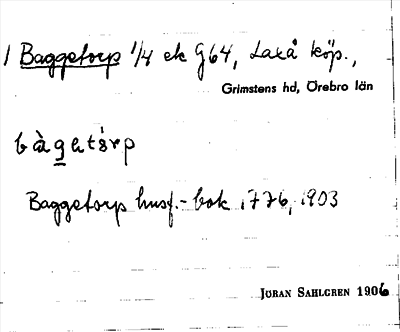 1 Baggetorp 1/4 ek G64, Laxå köp.,
Grimstens hd, Örebro län
bàgetórp
Baggetorp husf.-bok 1776, 1903
JÖRAN SAHLGREN 1906